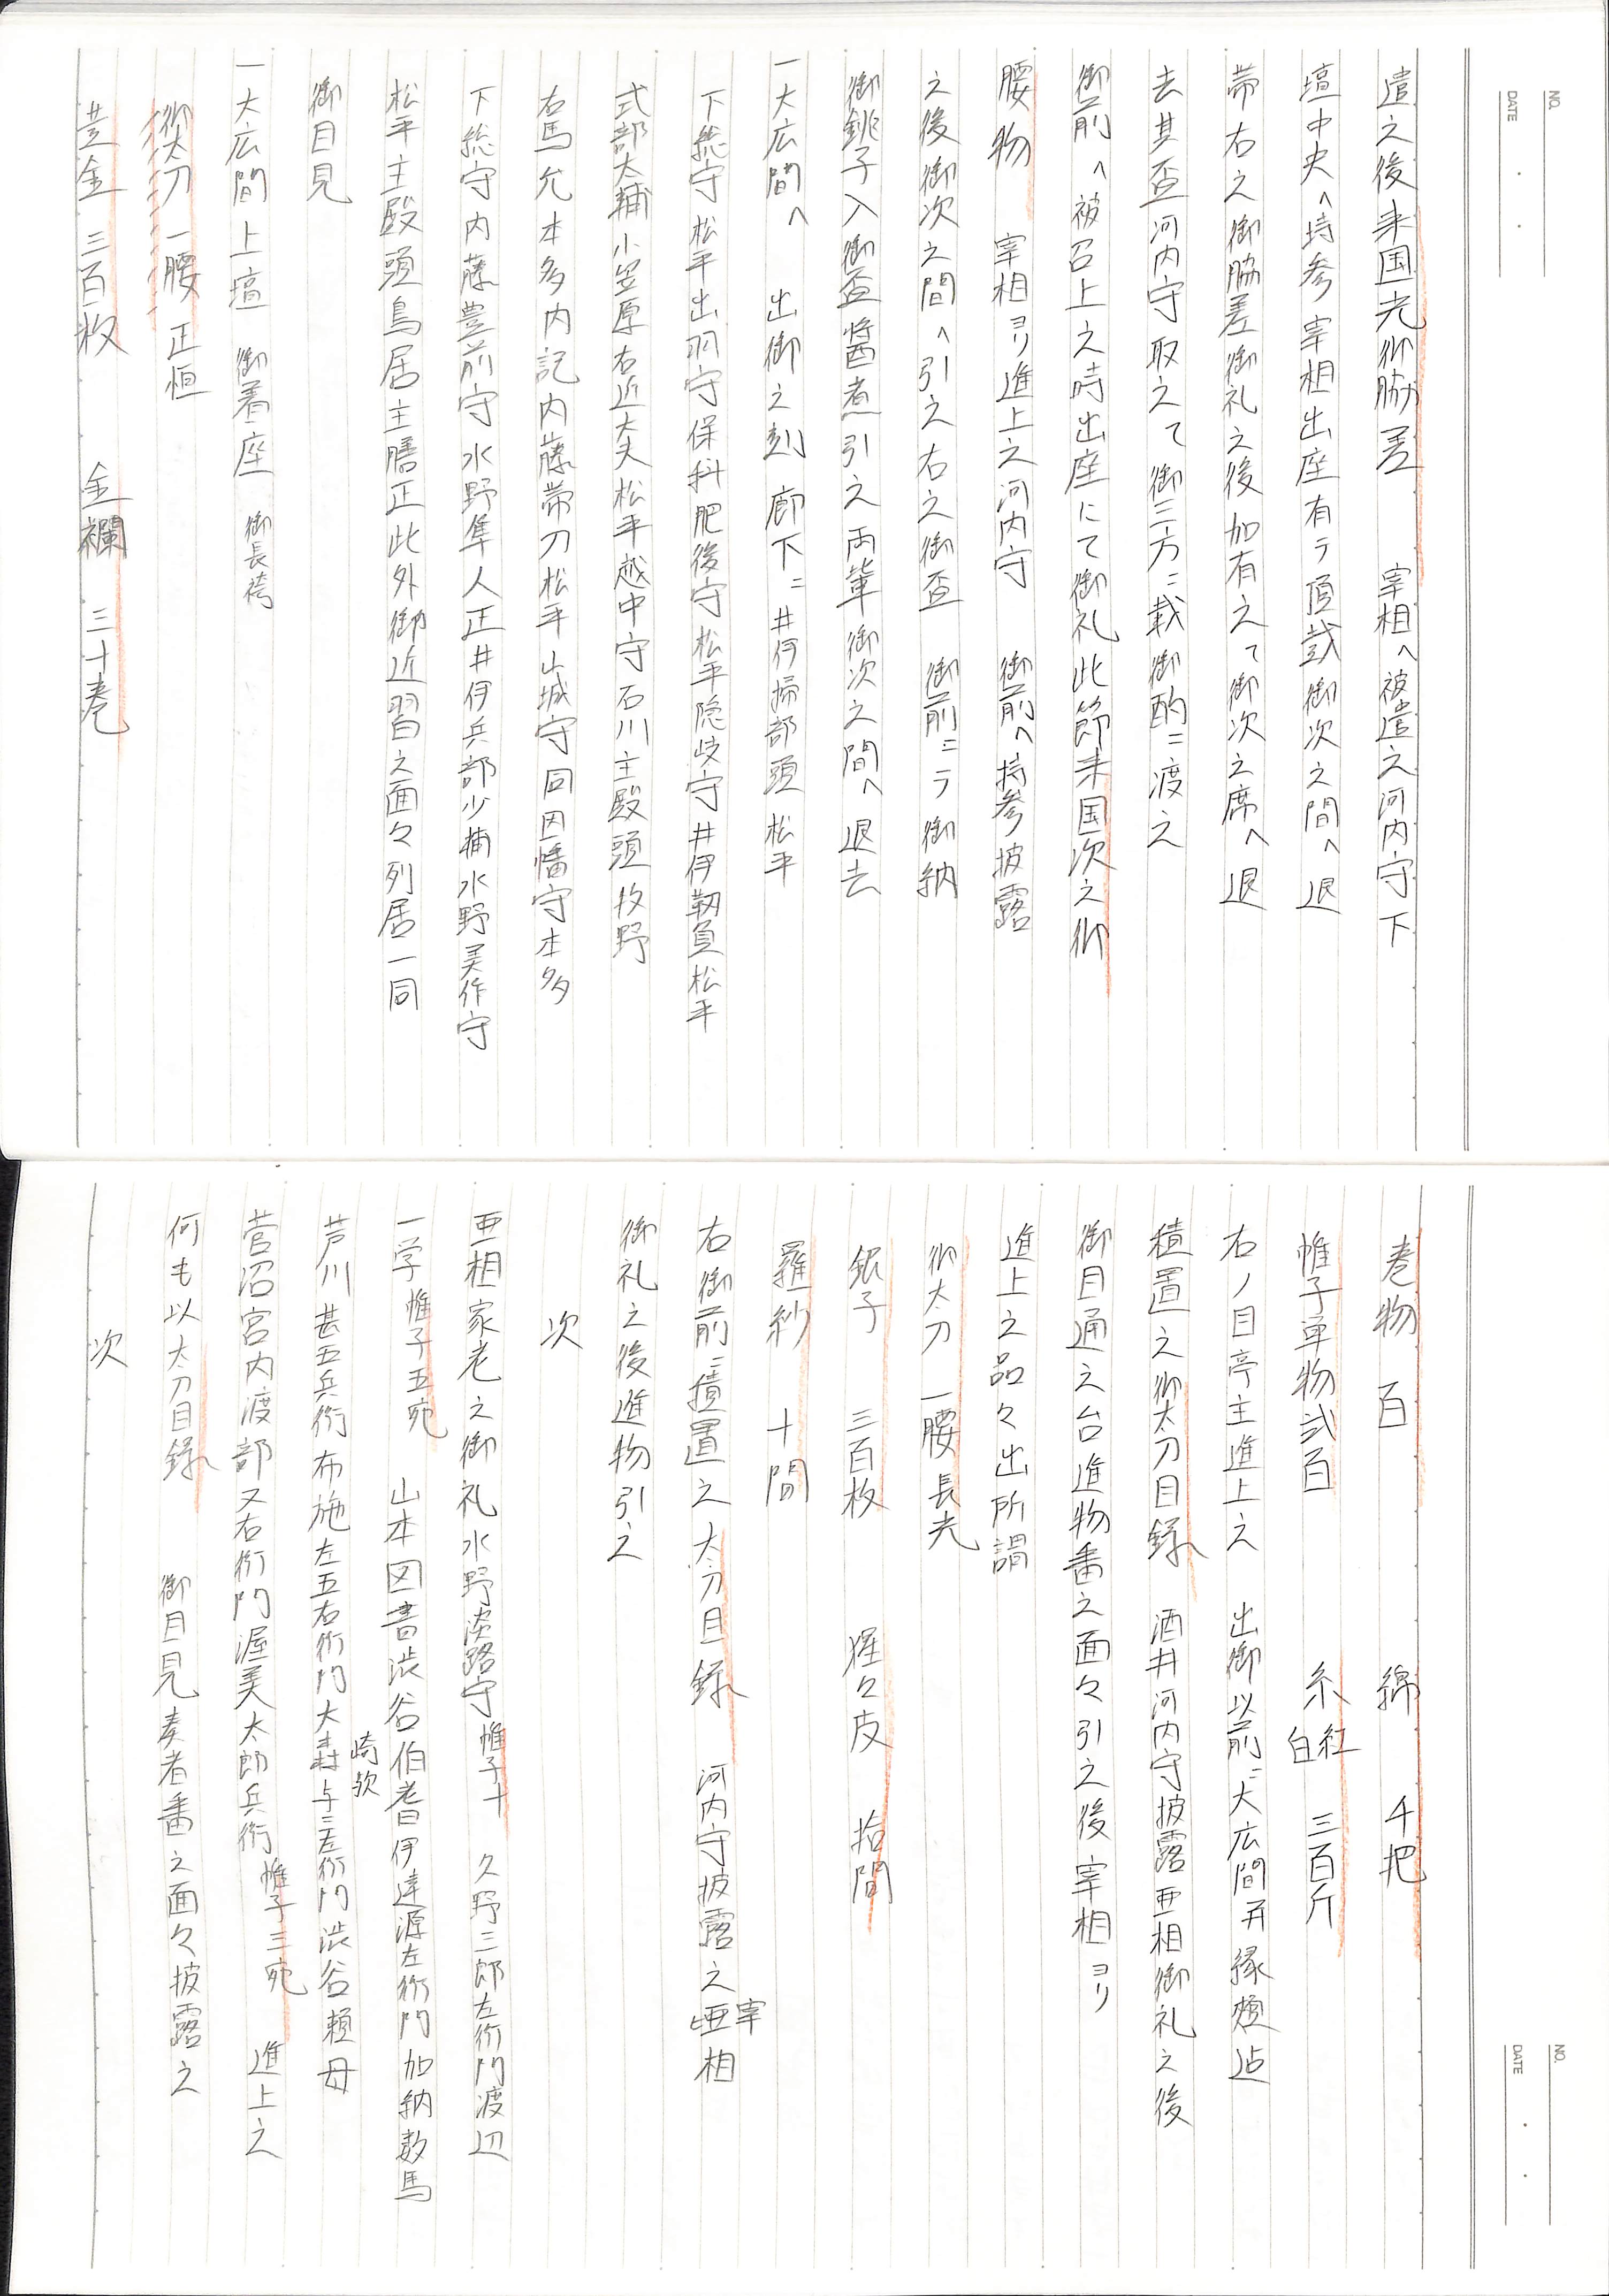 NO.
DATE
遣之後来国光御脇差 宰相へ被遣之河内守下
壇中央へ持参宰相出座有テ頂戴御次之間へ退
帯右之御脇差御礼之後加有之て御次之席へ退
去其盃河内守取之て御三方ニ載御酌ニ渡之
御前へ被召上之時出座にて御礼此節来国次之御
腰物 宰相ヨリ進上之河内守 御前へ持参披露
之後御次之間へ引之右之御盃 御前ニテ御納
御銚子入御盃醬煮引之両輩御次之間へ退去
一大広間へ 出御之刻廊下ニ井伊掃部頭松平
下総守松平出羽守保科肥後守松平隠岐守井伊靱負松平
式部太輔小笠原右近大夫松平越中守石川主殿頭牧野
右馬允本多内記内藤帯刀松平山城守同因幡守本多
下総守内藤豊前守水野隼人正井伊兵部少輔水野美作守
松平主殿頭鳥居主膳正此外御近習之面々列居一同
御目見
一大広間上壇 御着座 御長袴
御太刀 一腰 正恒
黄金 三百枚 金襴 三十巻
NO.
DATE
巻物 百 綿 千把
帷子単物弐百 糸紅白 三百斤
右ノ目亭主進上之 出御以前ニ大広間并縁頬迠
積置之御太刀目録 酒井河内守披露亜相御礼之後
御目通之台進物番之面々引之後宰相ヨリ
進上之品々出所謂
御太刀 一腰 長光
銀子 三百枚 猩々皮 拾間
羅紗 十間
右御前ニ積置之太刀目録 河内守披露之亜宰相
御礼之後進物引之
次
亜相家老之御礼水野淡路守帷子十 久野三郎左衛門渡辺
一学帷子五宛 山本図書渋谷伯耆伊達源左衛門加納数馬
芦川甚五兵衛布施左五右衛門大嶹与三左衛門渋谷頼母
崎歟
菅沼宮内渡部又右衛門渥美太郎兵衛帷子三宛 進上之
何も以太刀目録 御目見奏者番之面々披露之
次